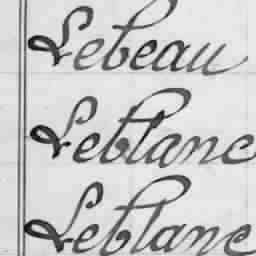 Lebeau
Leblanc
Leblanc